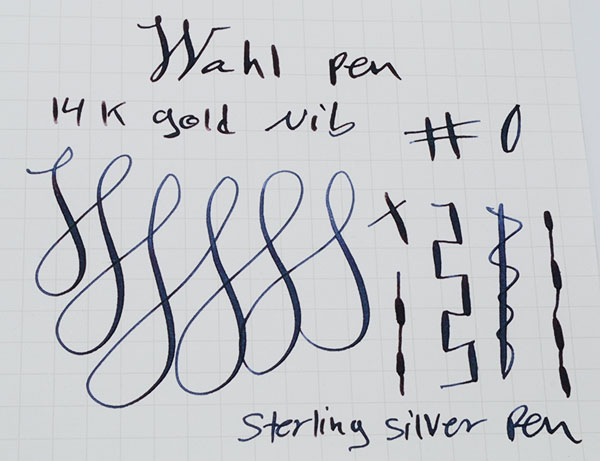 Wahl pen
14K gold nib
# 0
Sterling silver pen